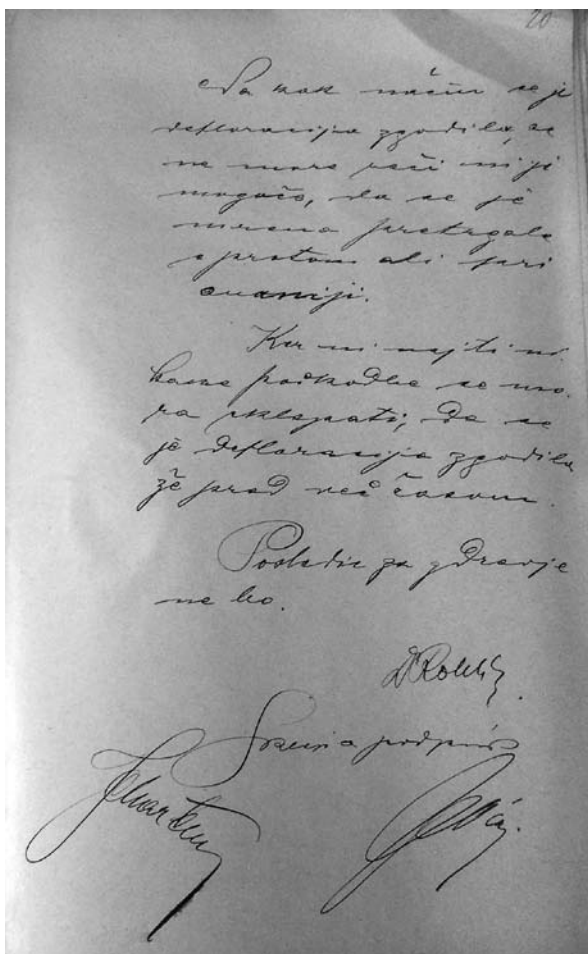 20
Na kak način se je
defloracija zgodila, se
ne more reči in je
mogoče, da se je
mrena pretrgala
s prstom ali pri
onaniji.
Ker ni najti ni
kake poškodbe se mo-
ra sklepati, da se
je defloracija zgodila
že pred več časom.
Posledic za zdravje
ne bo.
podpis